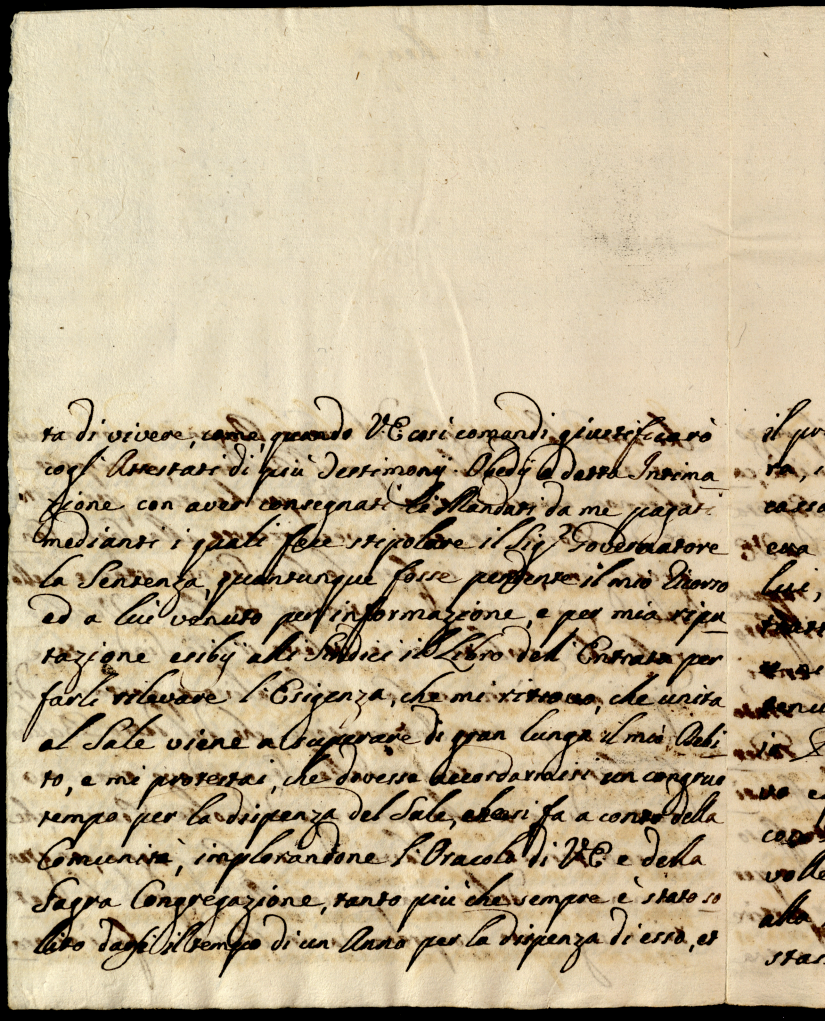 ta di vivere, come quando VE così comandi giustificarò
cogl'Attestati di più Testimonij. Obedij a detta Intima
zione con aver consegnati li Mandati da me pagati
medianti i quali fece stipolare il Sigr. Governatore
la Sentenza, quantunque fosse pendente il mio Ricorso
ed a lui venuto per informazione, e per mia ripu
tazione esibij alli Sindici il Libro dell'Entrata per
farli rilevare l'Esigenza, che mi ritrovo, che unita
al Sale viene a superare di gran lunga il mio Debi
to, e mi protestai, che dovesse accordarmisi un congruo
tempo per la dispenza del Sale, che si fa a conto della
Comunità, implorandone l'Oracolo di VE e della
Sagra Congregazione, tanto più che sempre è stato so
lito darsi il tempo di un Anno per la dispenza di esso, et
il pr
ra, 
lui,
volle
alla